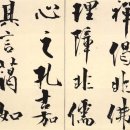 禅偈非佛
理障非儒
心之孔嘉
其言蔼如